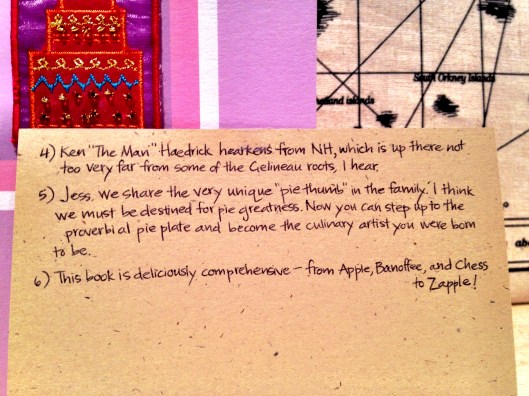 South Orkney Islands
land islands
4) Ken "The Man" Haedrick hearkens from NH, which is up there not
too very far from some of the Gelineau roots, I hear.
5) Jess, we share the very unique "pie thumb" in the family. I think
we must be destined for pie greatness. Now you can step up to the
proverbial pie plate and become the culinary artist you were born
to be.
6) This book is deliciously comprehensive – from Apple, Banoffee, and Chess
to Zapple!